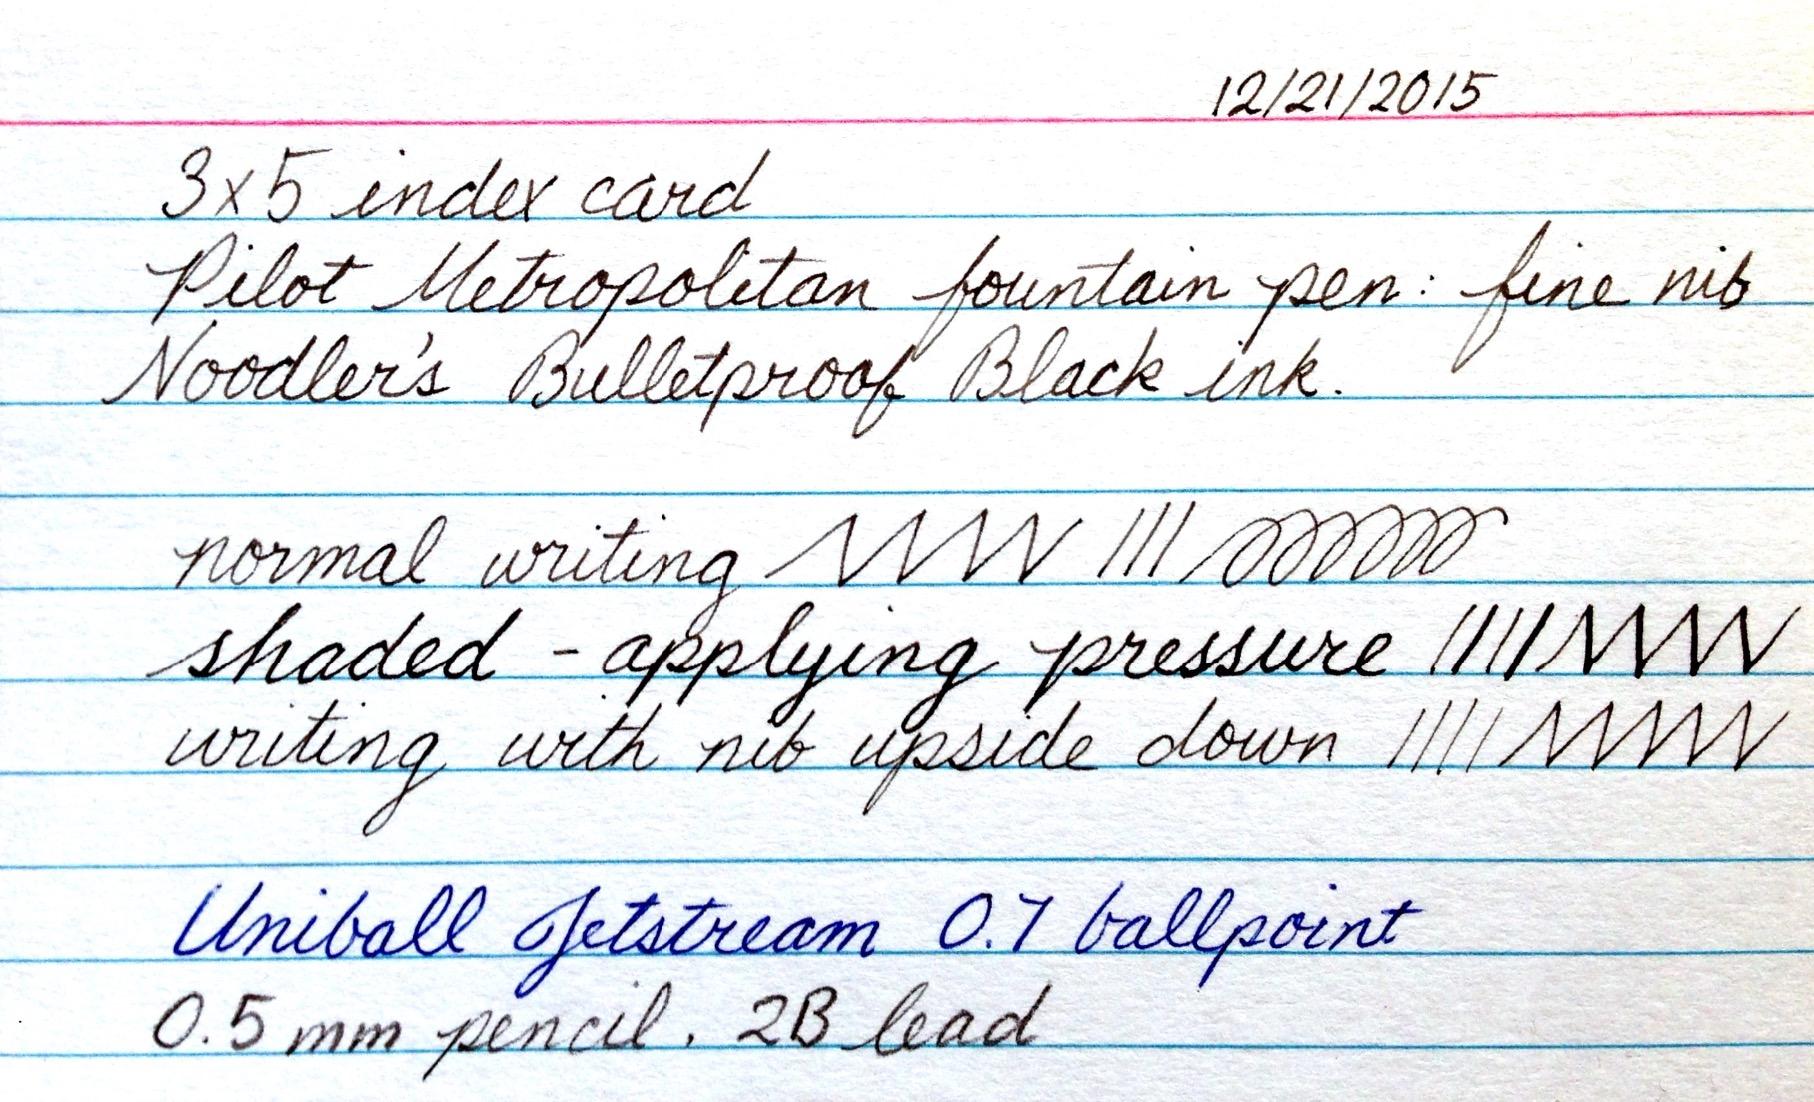 12/21/2015
3x5 index card
Pilot Metropolitan fountain pen: fine nib
Noodler's Bulletproof Black ink.
normal writing
shaded - applying pressure
writing with nib upside down
Uniball Jetstream 0.7 ballpoint
0.5 mm pencil. 2B lead